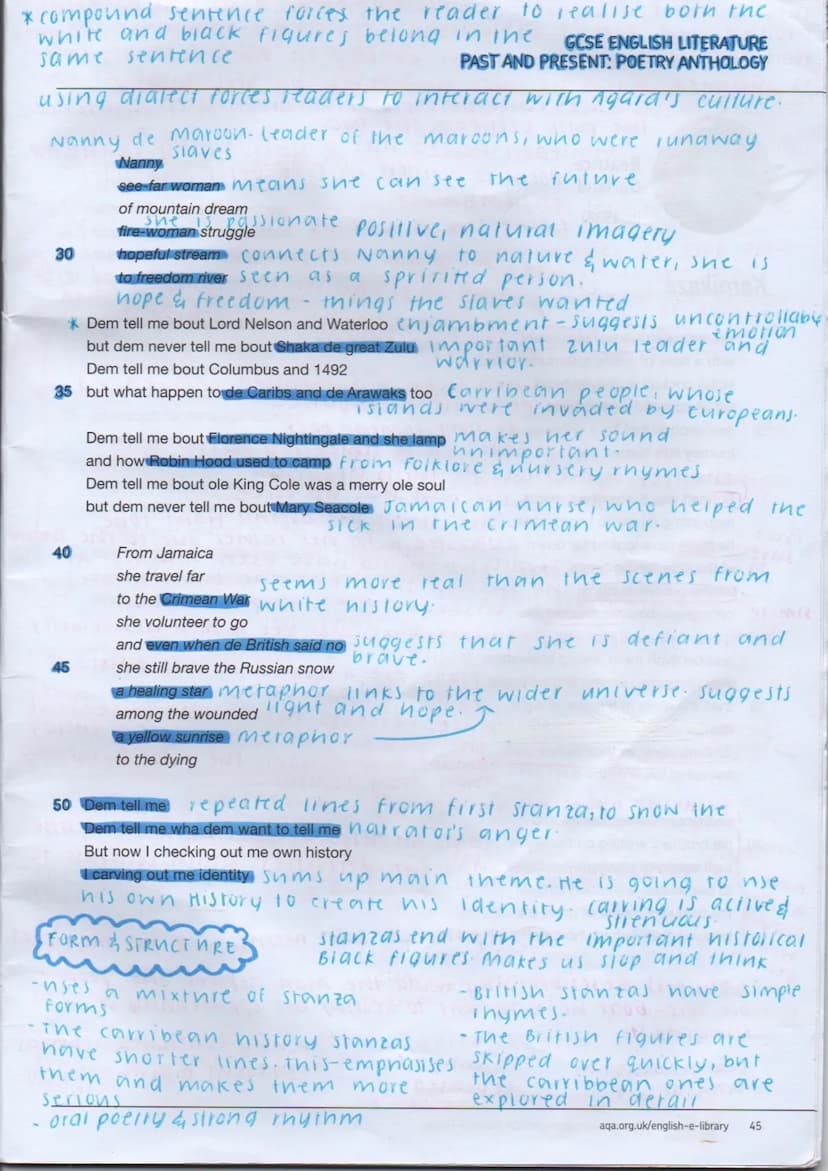 *compound sentence forces the reader to realise both the
white and black figures belong in the
same sentence
GCSE ENGLISH LITERATURE
PAST AND PRESENT: POETRY ANTHOLOGY
using dialect forces readers to interact with Agard's culture.
Nanny de Maroon- leader of the maroons, who were runaway
slaves
Nanny
see-far woman means she can see the future
of mountain dream
she is passionate
fire-woman struggle positive, natural imagery
30 hopeful stream connects Nanny to nature & water, she is
to freedom river seen as a spririted person.
hope & freedom - things the slaves wanted
* Dem tell me bout Lord Nelson and Waterloo enjambment - suggests uncontrollable
emotion
but dem never tell me bout Shaka de great Zulu important zulu leader and
warrior.
Dem tell me bout Columbus and 1492
35 but what happen to de Caribs and de Arawaks too Carribean people, whose
islands were invaded by europeans.
Dem tell me bout Florence Nightingale and she lamp makes her sound
unimportant.
and how Robin Hood used to camp from folklore & nursery rhymes
Dem tell me bout ole King Cole was a merry ole soul
but dem never tell me bout Mary Seacole Jamaican nurse, who helped the
sick in the crimean war.
40 From Jamaica
she travel far
seems more real than the scenes from
to the Crimean War white history.
she volunteer to go
and even when de British said no suggests that she is defiant and
brave.
45 she still brave the Russian snow
a healing star metaphor links to the wider universe. suggests
among the wounded light and hope.
a yellow sunrise metaphor
to the dying
50 Dem tell me repeated lines from first stanza, to show the
Dem tell me wha dem want to tell me narrator's anger.
But now I checking out me own history
I carving out me identity sums up main theme. He is going to use
his own History to create his identity. carving is active &
strenuous.
FORM & STRUCTURE
stanzas end with the important historical
Black figures. Makes us stop and think
-uses a mixture of stanza
forms
- The carribean history stanzas
have shorter lines. This-emphasises
them and makes them more
serious
- oral poetry & strong rhythm
-British stanzas have simple
rhymes.
- The British figures are
skipped over quickly, but
the carribbean ones are
explored in detail
aqa.org.uk/english-e-library 45